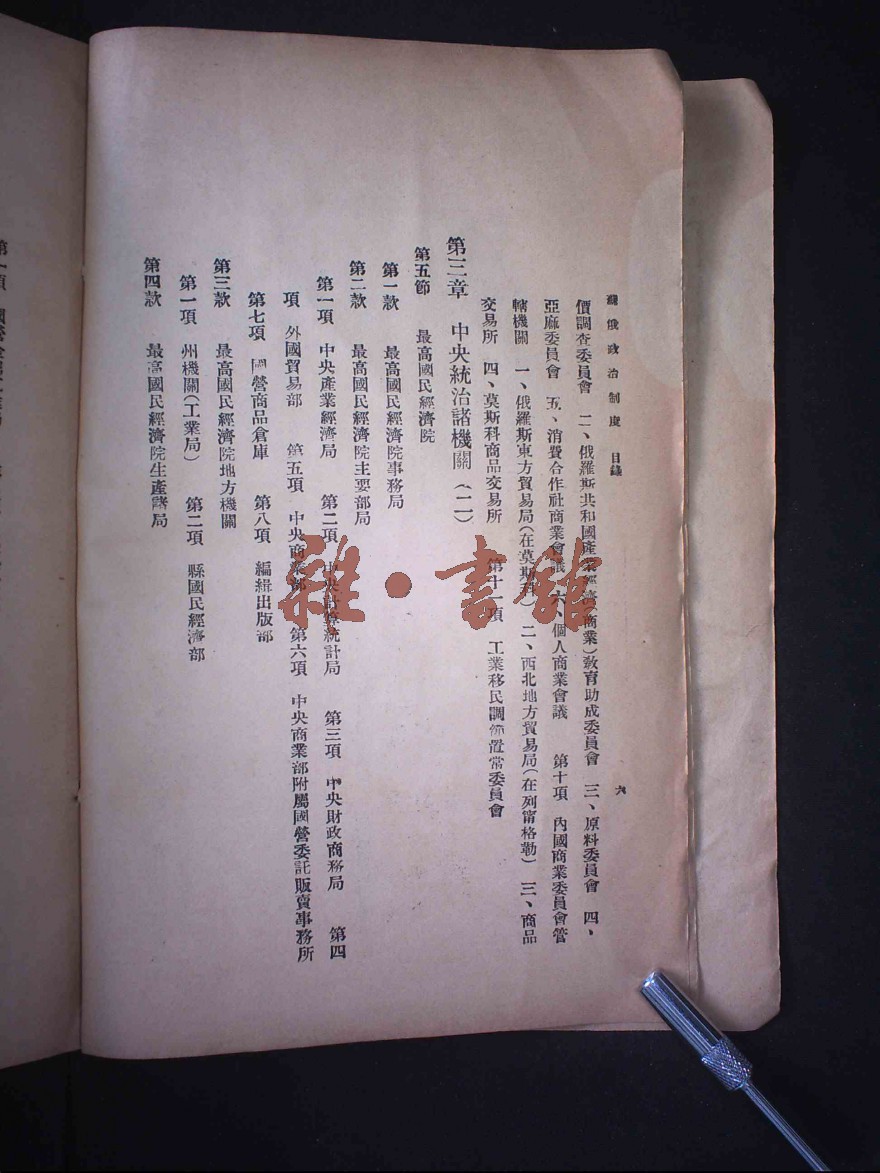 蘇俄政治制度　目錄　六
價調查委員會　二、俄羅斯共和國產業經濟(商業)敎育助成委員會　三、原料委員會　四、
亞麻委員會　五、消費合作社商業會議　六、個人商業會議　第十項　內國商業委員會管
轄機關　一、俄羅斯東方貿易局(在莫斯科)　二、西北地方貿易局(在列甯格勒)　三、商品
交易所　四、莫斯科商品交易所　第十一項　工業移民調節置常委員會
第三章　中央統治諸機關(二)
第五節　最高國民經濟院
第一款　最高國民經濟院事務局
第二款　最高國民經濟院主要部局
第一項　中央產業經濟局　第二項　中央計算統計局　第三項　中央財政商務局　第四
項　外國貿易部　第五項　中央商業部　第六項　中央商業部附屬國營委託販賣事務所
第七項　國營商品倉庫　第八項　編緝出版部
第三款　最高國民經濟院地方機關
第一項　州機關(工業局)　第二項　縣國民經濟部
第四款　最高國民經濟院生產諸局
雜·書館